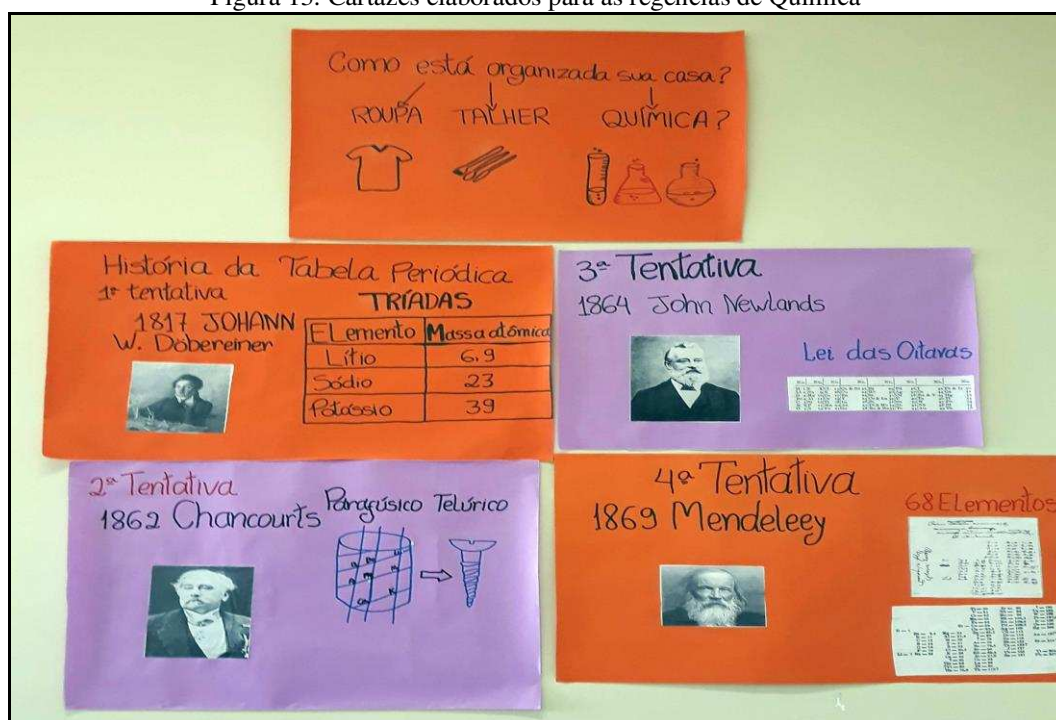 Figura 13: Cartazes elaborados para as regências de Química
Como está organizada sua casa?
ROUPA TALHER QUÍMICA?
História da Tabela Periódica
1ª tentativa
1817 JOHANN
W. Döbereiner
TRÍADAS
ELemento Massa atômica
Lítio 6.9
Sódio 23
Potássio 39
3ª Tentativa
1864 John Newlands
Lei das Oitavas
2ª Tentativa
1862 Chancourts
Paragúsico Telúrico
4ª Tentativa
1869 Mendeleey
68 ELementos